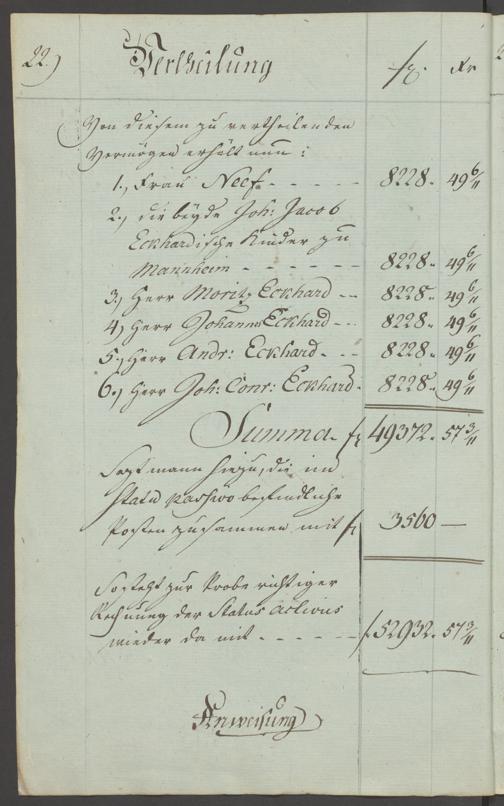 22.) Vertheilung fl. Xr
Von diesem zu vertheilenden
Vermögen erhält nun:
1., Frau Neef - - - - - 8228„ 49 6/11
2.) die beyde Joh: Jacob
Eckhardische Kinder zu
Mannheim - - - - - - 8228„ 49 6/11
3.) Herr Moritz Eckhard - - 8228„ 49 6/11
4.) Herr Johann Eckhard - - 8228„ 49 6/11
5.) Herr Andr: Eckhard - - - 8228„ 49 6/11
6.) Herr Joh: Conr: Eckhard - 8228„ 49 6/11
Summa - fl 49372„ 57 3/11
Sezt mann hiezu, die im
Statu passivo befindliche
Posten zusammen mit fl 3560 —
So steht zur Probe richtiger
Rechnung der Status activus
wieder da mit - - - - - f. 52932„ 57 3/11
Anweisung